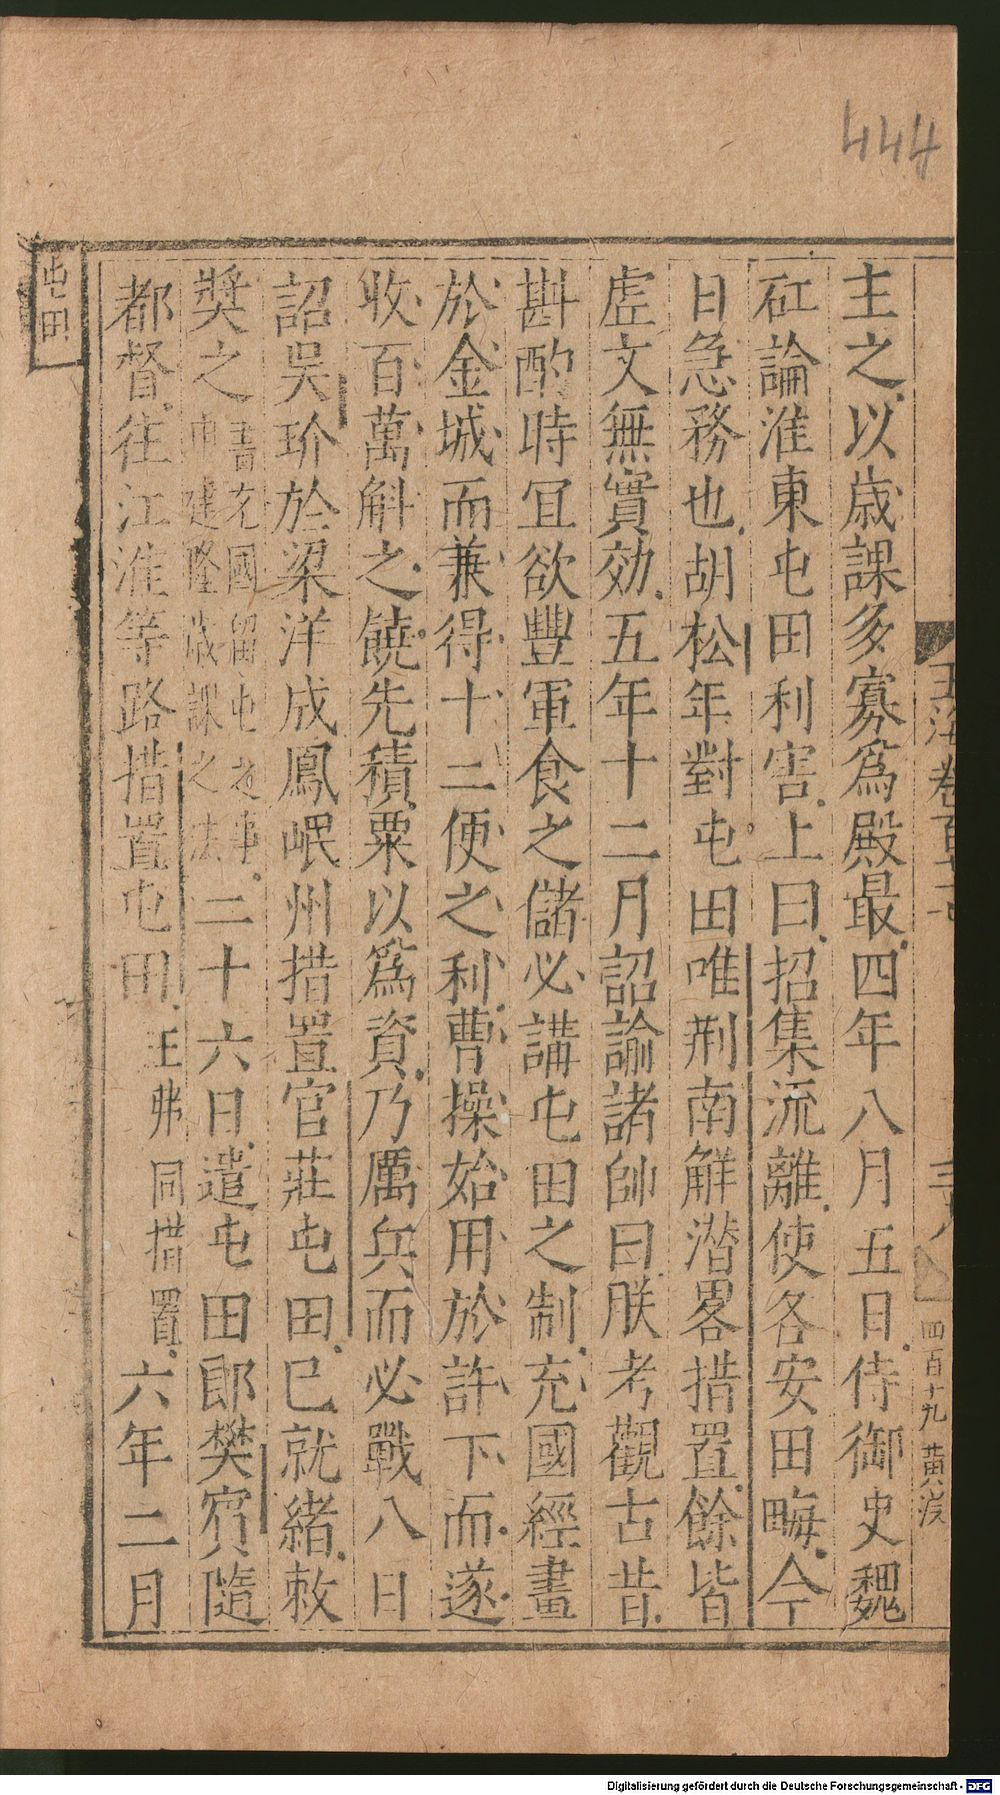 444
主之以歳課多寡爲殿最四年八月五日侍御史魏
矼論淮東屯田利害上曰招集流離使各安田畮今
日急務也胡松年對屯田唯荆南解潛畧措置餘皆
虛文無實効五年十二月詔諭諸帥曰朕考觀古昔
斟酌時冝欲豐軍食之儲必講屯田之制充國經畫
於金城而兼得十二便之利曹操始用於許下而遂
收百萬斛之饒先積粟以爲資乃厲兵而必戰八日
詔吳玠於梁洋成鳳岷州措置官莊屯田已就緒敕
奬之書充國留屯之事申建隆歳課之法二十六日遣屯田郎樊賓隨
都督往江淮等路措置屯田王弗同措置六年二月
屯田
玉海卷百七十七
四百十九
Digitalisierung gefördert durch die Deutsche Forschungsgemeinschaft - DFG